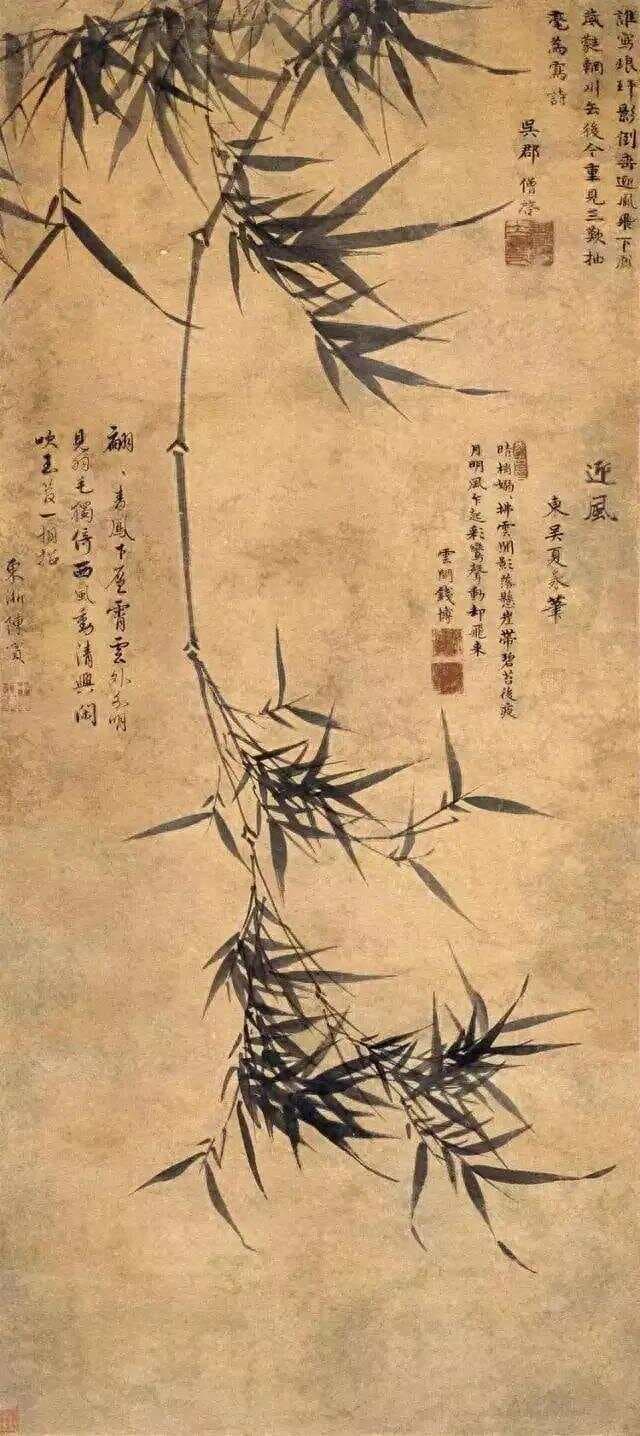 誰寫琅玕影倒垂迎風飛下
葳蕤輞川去後今重見三歎抽
毫為寫詩
吳郡 僧啓
迎風
東吳夏㫤筆
晴梢嫋〻拂雲開影落懸崖帶碧苔後夜
月明風乍起彩鸞聲動却飛來
雲間錢博
翩〻青鳳下層霄雲外分明
見羽毛獨倚西風動清興閑
吹玉笛一相招
東浙陳